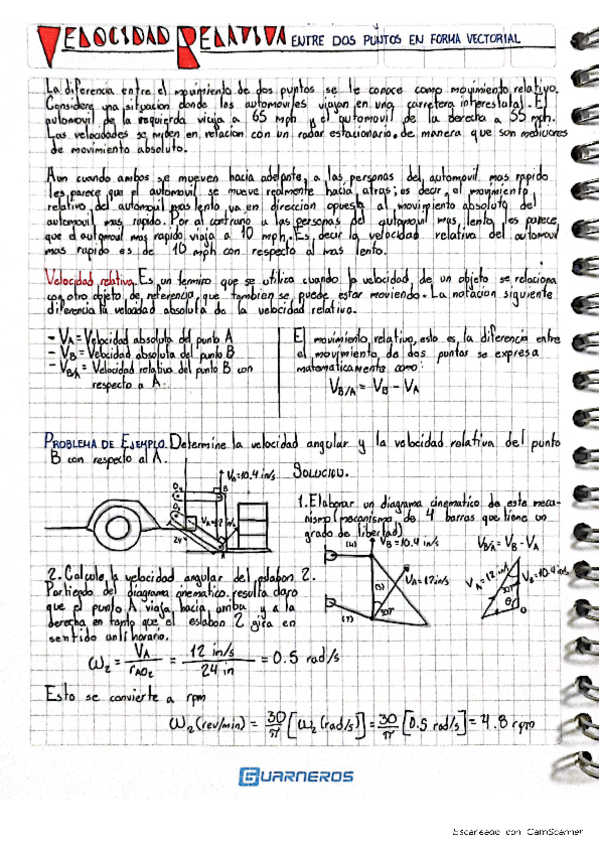 VELOCIDAD RELATIVA ENTRE DOS PUNTOS EN FORMA VECTORIAL
La diferencia entre el movimiento de dos puntos se le conoce como movimiento relativo.
Considere una situacion donde los automoviles viajan en una carretera interestatal. El
automovil de la izquierda viaja a 65 mph y el automovil de la derecha a 55 mph.
Las velocidades se miden en relacion con un radar estacionario, de manera que son mediciones
de movimiento absoluto.
Aun cuando ambos se mueven hacia adelante, a las personas del automovil mas rapido
les parece que el automovil se mueve realmente hacia atras; es decir, el movimiento
relativo del automovil mas lento va en direccion opuesta al movimiento absoluto del
automovil mas rapido. Por al contrario a las personas del automovil mas lento les parece,
que el automovil mas rapido viaja a 10 mph. Es decir la velocidad relativa del automovil
mas rapido es de 10 mph con respecto al mas lento.
Velocidad relativa. Es un termino que se utiliza cuando la velocidad de un objeto se relaciona
con otro objeto de referencia, que tambien se puede estar moviendo. La notacion siguiente
diferencia la velocidad absoluta de la velocidad relativa.
- VA = Velocidad absoluta del punto A
- VB = Velocidad absoluta del punto B
- VB/A = Velocidad relativa del punto B con
respecto a A.
El movimiento relativo, esto es, la diferencia entre
el movimiento de dos puntos se expresa
matematicamente como:
VB/A = VB - VA
PROBLEMA DE EJEMPLO. Determine la velocidad angular y la velocidad relativa del punto
B con respecto al A.
VB=10.4 in/s
B
VA=12 in/s
24"
A
SOLUCION.
1. Elaborar un diagrama cinematico de este meca-
nismo (mecanismo de 4 barras que tiene un
grado de libertad)
(4)
VB=10.4 in/s
VA=12in/s
(3)
30°
VB/A = VB - VA
VA=12 in/s
VB=10.4 in/s
30°
θ
2. Calcule la velocidad angular del eslabon 2.
Partiendo del diagrama cinematico resulta claro
que el punto A viaja hacia arriba y a la
derecha en tanto que el eslabon 2 gira en
sentido anti horario.
ω2 = VA / rAO2 = 12 in/s / 24 in = 0.5 rad/s
Esto se convierte a rpm
ω2 (rev/min) = 30/π [ω2 (rad/s)] = 30/π [0.5 rad/s] = 4.8 rpm
GUARNEROS
Escaneado con CamScanner